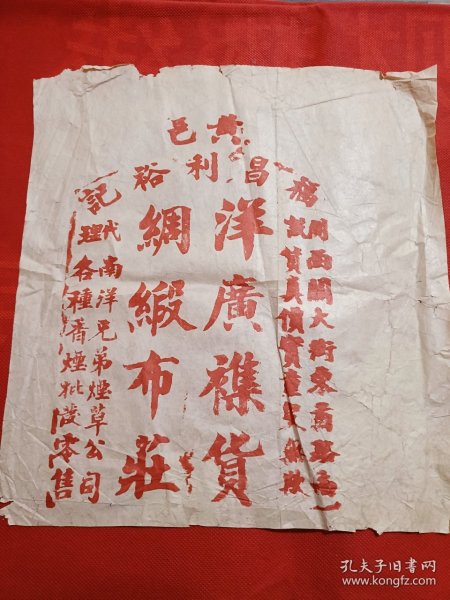 黄邑
昌利裕記
開西關大街東首路南
設貨真價實童叟無欺
洋廣襍貨
綢緞布莊
代南洋兄弟煙草公司
理各種香煙批發零售
孔夫子旧书网
www.kongfz.com